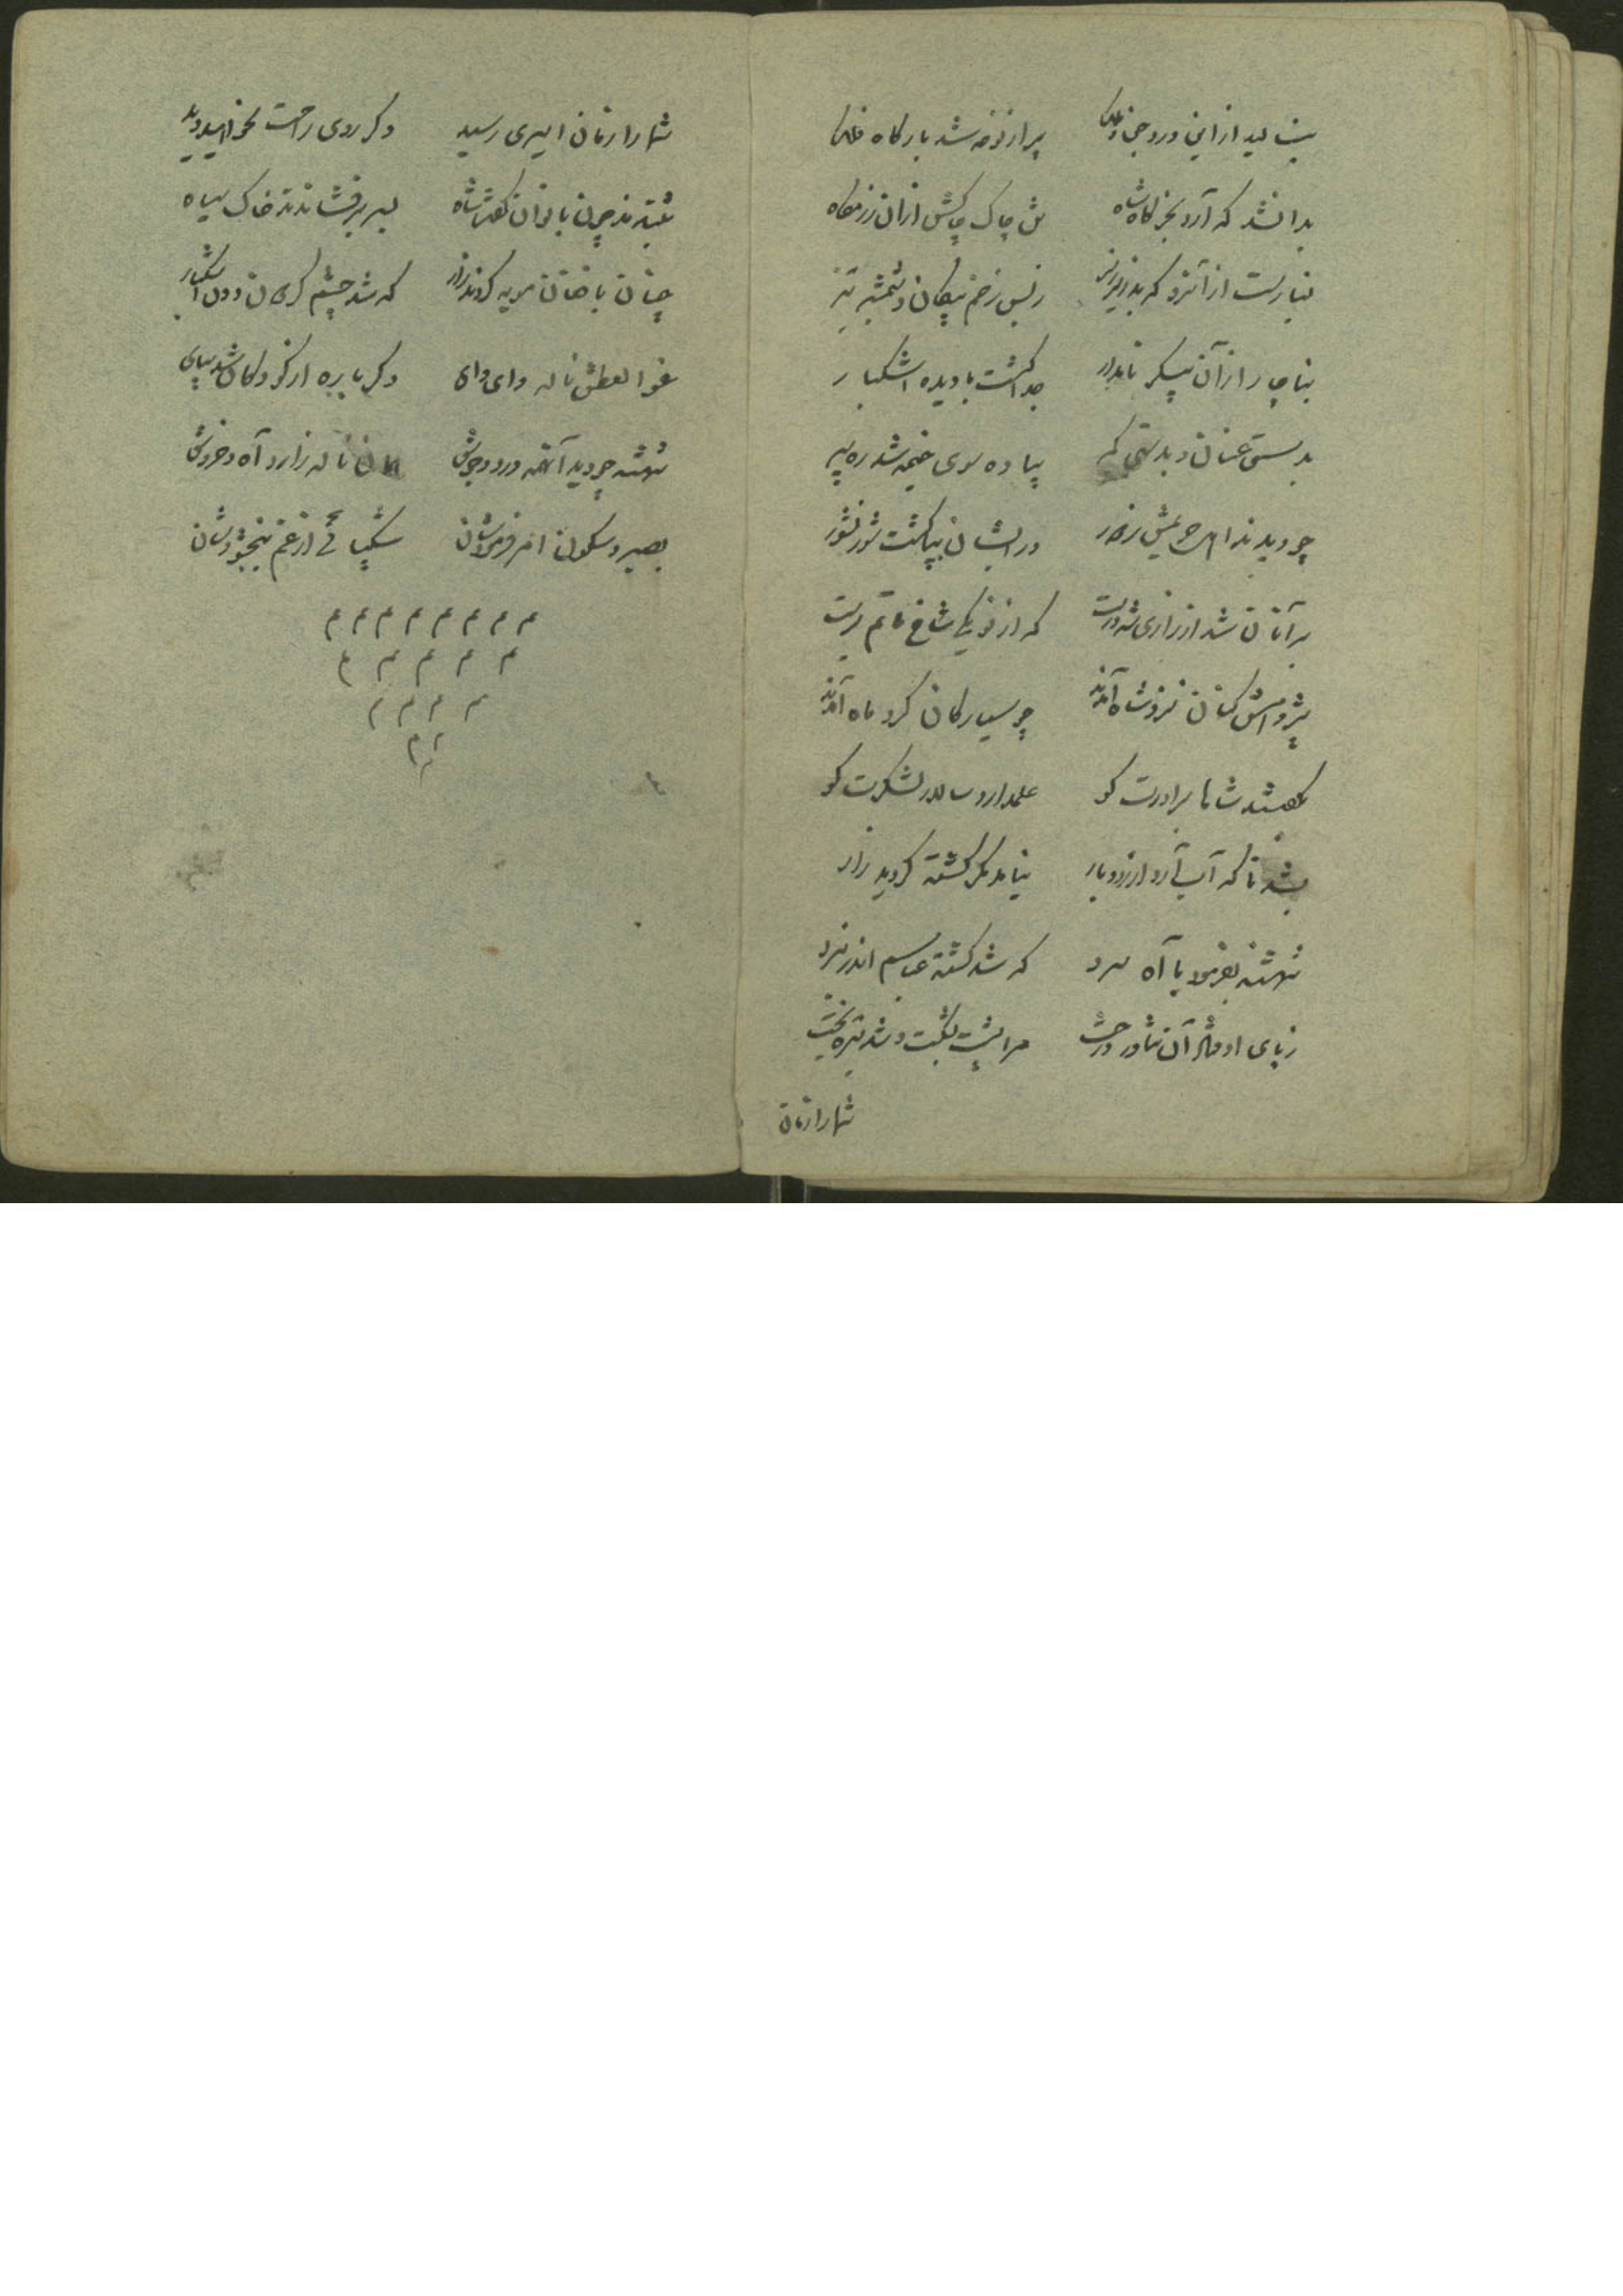 بنالید از این درد چنان ملک پر از نوحه شد بارگاه فلک
بدانشد که آرد بخرگاه شاه تن چاک چاکش از آن رزمگاه
نیارست از آنرو که بد ریز ریز ز بس زخم پیکان و شمشیر تیز
بناچار از آن پیکر نامدار جدا گشت با دیده اشکبار
بدستی عنان و بدستی کمر پیاده سوی خیمه شد ره سپر
چو دیدند اهل حریمش ز دور در ایشان بپا گشت شور نشور
بر آنان شد از زاری شه درست که از نو یکی شاخ ماتم برست
پژوهش کنان نزد شاه آمدند چو سیارگان گرد ماه آمدند
بگفتند شاها برادرت کو علمدار و سالار لشکرت کو
بشد تا که آب آرد از رودبار نیامد مگر کشته گردید زار
شهنشه بفرمود با آه سرد که شد کشته عباسم اندر نبرد
ز پای اوفتاد آن تناور درخت مرا پشت بشکست و شد تیره بخت
شما را زمان
شما را زمان اسیری رسید دگر روی راحت نخواهید دید
شنیدند چون بانوان گفت شاه بسر برفشاندند خاک سیاه
چنان با فغان مویه کردند زار که شد چشم گردون دون اشکبار
غو العطش ناله وای وای دگر باره از کودکان شد بپای
شهنشه چو دید آنهمه درد و جوش همان ناله زار و آه و خروش
بصبر و سکون امر فرمودشان شکیبائی از غم ببخشودشان
م م م م م م م م
م م م م م
م م م م
م م